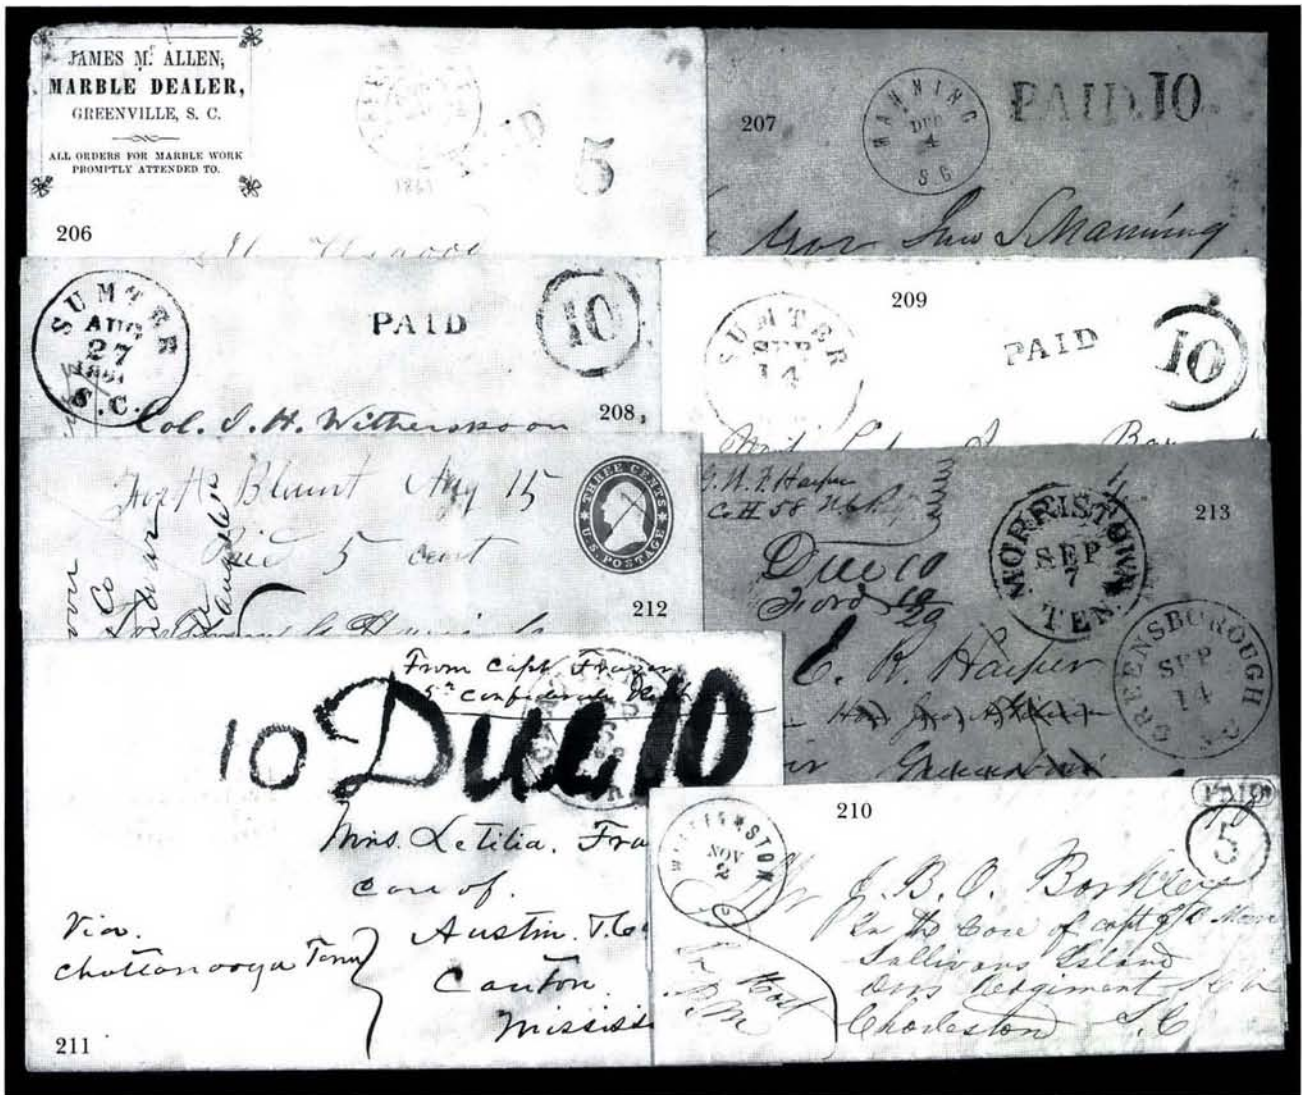 JAMES Mc ALLEN,
MARBLE DEALER,
GREENVILLE, S. C.
ALL ORDERS FOR MARBLE WORK
PROMPTLY ATTENDED TO.
PAID
5
1861
206
207
MANNING
DEC
4
S C
PAID 10
Gov Jno S Manning
SUMTER
AUG
27
1861
S.C.
PAID
10
Col. J. H. Witherspoon
208
209
SUMTER
SEP
14
PAID
10
Fort Blount Aug 15
Paid 5 cent
THREE CENTS
U.S. POSTAGE
212
G. W. F. Harper
Co H 58 N C
213
Due 10
Ford 10
20
MORRISTOWN
SEP
7
TEN.
C. R. Harper
GREENSBOROUGH
SEP
14
N.C.
From Capt Frazer
5th Confederate
10 Due 10
Mrs. Letitia. Fra
care of.
Austin.
Via.
Chattanooga Tenn
Canton.
Mississi
211
210
WILLIAMSTON
NOV
2
PAID
5
J. B. O.
In the Care of capt
Sullivans Island
Orrs Regiment
Charleston S.C